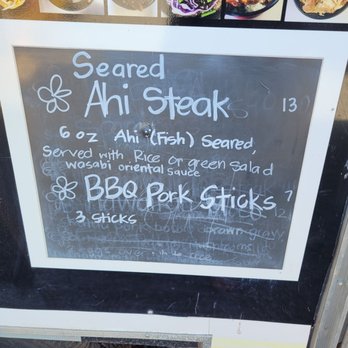 Seared
Ahi Steak 13
6 oz Ahi (Fish) Seared,
Served with Rice or green Salad
wasabi oriental sauce
BBQ Pork Sticks 7
3 sticks